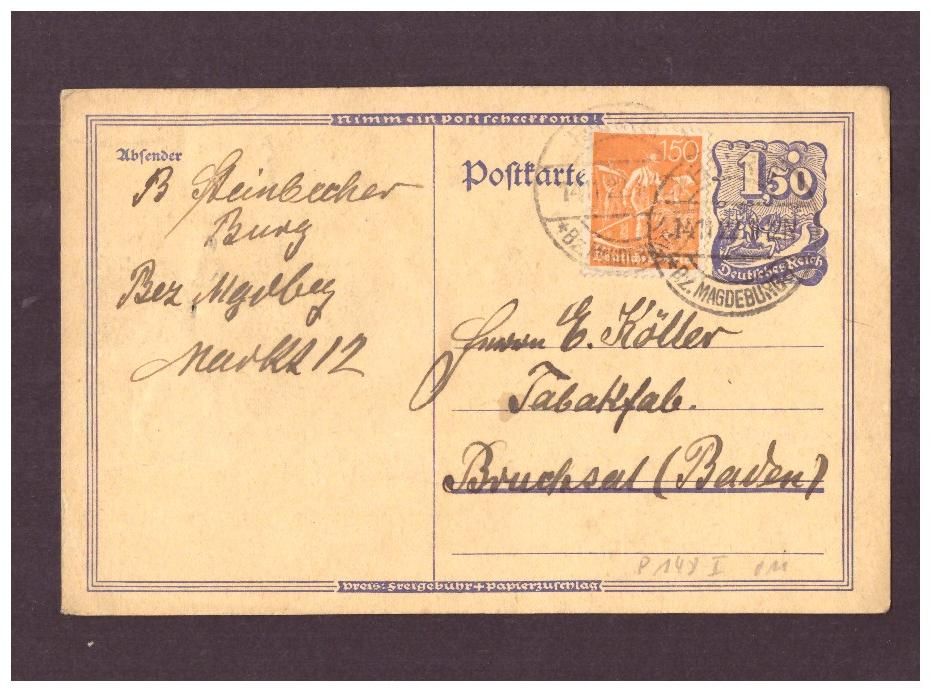 Nimm ein Postscheckkonto!
Absender
B Steinbecher
Burg
Bez Mgdbg
Markt 12
Postkarte
150
Deutsches Reich
1,50
Deutsches Reich
14.11.22
BZ. MAGDEBURG
Herrn E. Köller
Tabakfab.
Bruchsal (Baden)
P 148 I
Preis: Freigebühr + Papierzuschlag